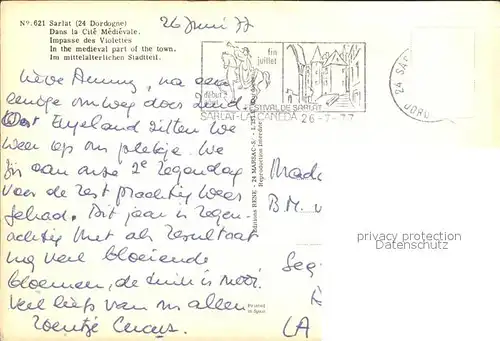 No. 621 Sarlat (24 Dordogne)
Dans la Cité Médiévale.
Impasse des Violettes
In the medieval part of the town.
Im mittelalterlichen Stadtteil.
26 Juni 77
fin
juillet
début
FESTIVAL DE SARLAT
SARLAT-LA CANEDA 26-7-77
24 SAR
lieve Anny, na een
enige omweg door Zuid
Oost Engeland zitten we
weer op ons plekje. We
aan onze 2e regendag
voor de rest prachtig weer
gehad. Dit jaar is regen-
achtig met als resultaat
nog veel bloeiende
bloemen, de tuin is mooi.
veel liefs van ons allen
Editions RENE - 24 MARSAC-S
Reproduction Interdite
Printed
in Spain
Mada
B.M. v
Seg
LA
privacy protection
Datenschutz